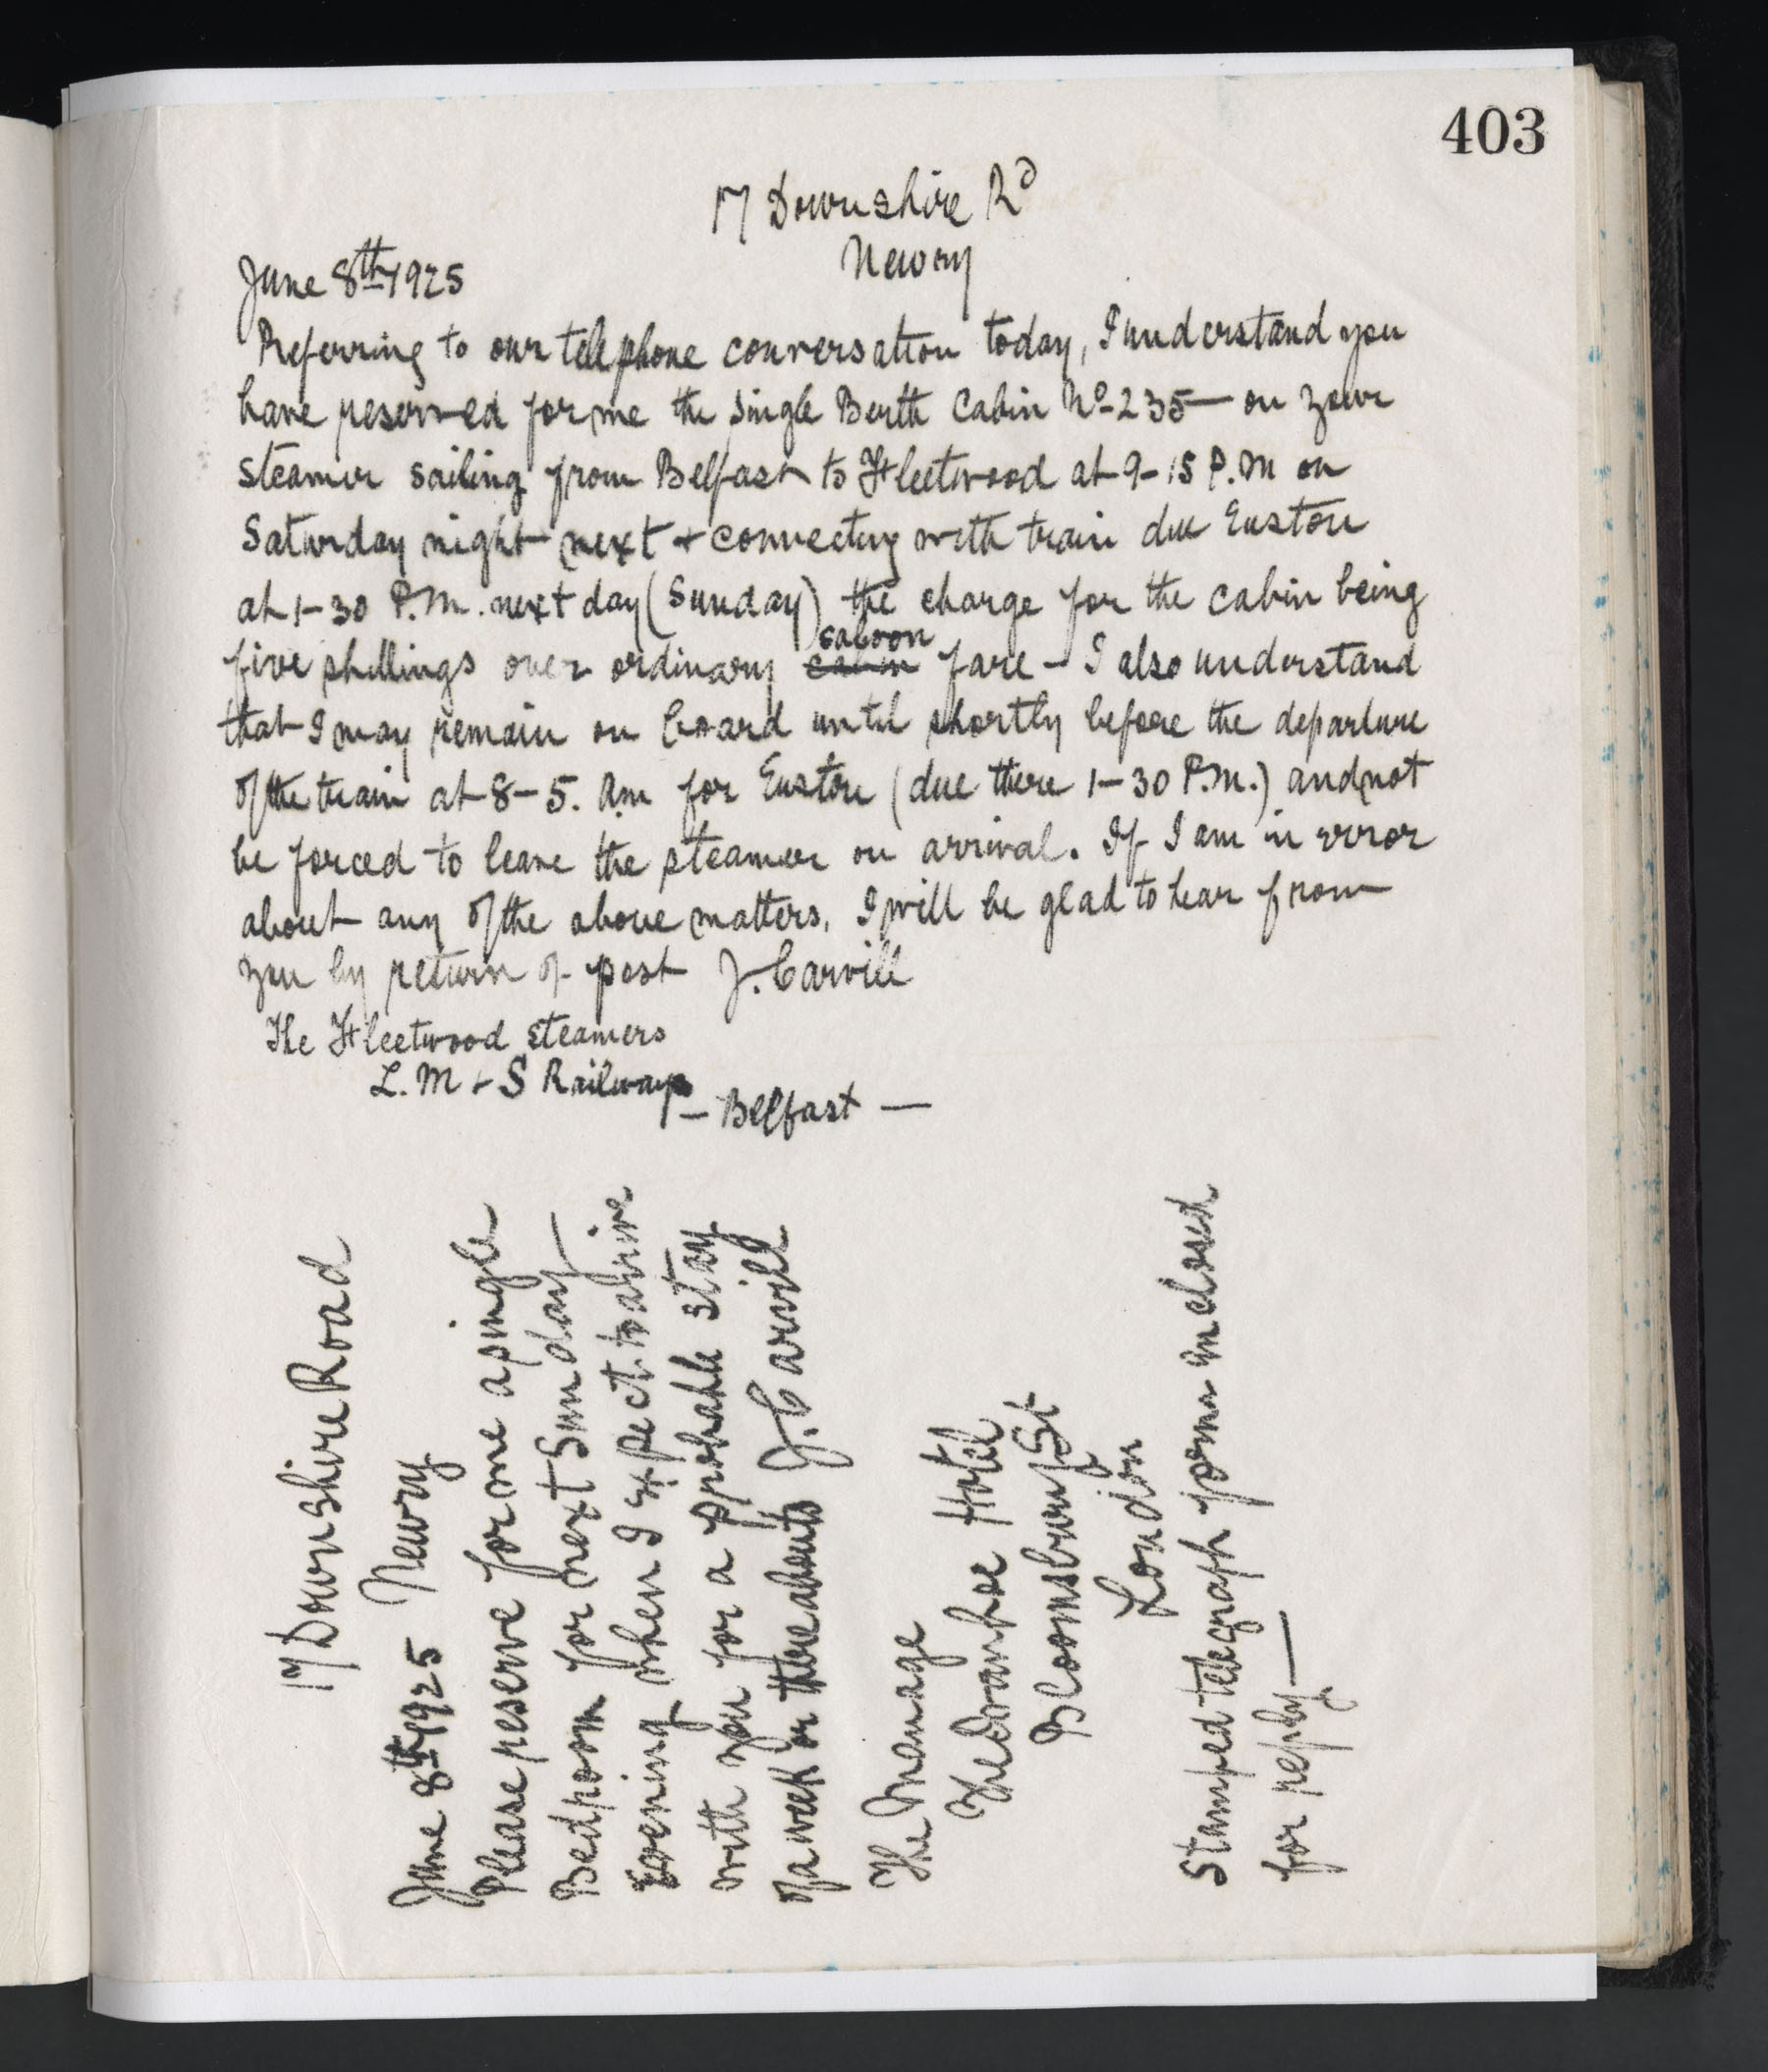 403
17 Downshire Rd
Newry
June 8th 1925
Referring to our telephone conversation today, I understand you
have reserved for me the single Berth Cabin No 235 — on your
steamer sailing from Belfast to Fleetwood at 9-15 P.M on
Saturday night next + connecting with train due Euston
at 1-30 P.M. next day (Sunday) the charge for the cabin being
saloon
five shillings over ordinary cabin fare - I also understand
that I may remain on board until shortly before the departure
of the train at 8-5. am for Euston (due there 1-30 P.M.) and not
be forced to leave the steamer on arrival. If I am in error
about any of the above matters, I will be glad to hear from
you by return of post J. Carvill
The Fleetwood Steamers
L. M + S Railways
— Belfast —
17 Downshire Road
June 8th 1925 Newry
Please reserve for me a single
Bedroom for next Sunday —
Evening when I expect to arrive
with you for a probable stay
of a week or thereabouts J. Carvill
The Manage
The Ivanhoe Hotel
Bloomsbury St
London
Stamped telegraph form enclosed
for reply —